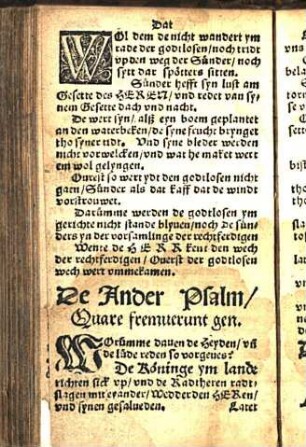 Dat
WOl dem de nicht wandert ym
rade der godtlosen/noch tridt
vp den weg der Sünder/noch
sytt dar spötters sitten.
Sünder hefft syn lust am
Gesette des HEREN/vnd redet van sy-
nem Gesette dach vnd nacht.
De wert syn/alß eyn boem geplantet
an den waterbeken/de syne frucht brynget
tho syner tidt. Vnd syne bleder werden
nicht vorwelcken/vnd wat he maket wert
em wol gelyngen.
Ouerst so wert ydt den godtlosen nicht
gan/Sünder als dat kaff dat de windt
vorstrouwet.
Darümme werden de godtlosen ym
gerichte nicht stande blyuen/noch de sün-
ders yn der vorsamlinge der rechtferdigen
Wente de HERR kent den wech
der rechtferdigen/Ouerst der godtlosen
wech wert vmmekamen.
De Ander Psalm/
Quare fremuerunt gen.
WOrümme dauen de Heyden/vñ
de lüde reden so vorgeues?
De Köninge ym lande
richten sick vp/vnd de Radtheren radt-
slagen mit eyander/Wedder den HEREn/
vnd synen gesalueden.
Latet